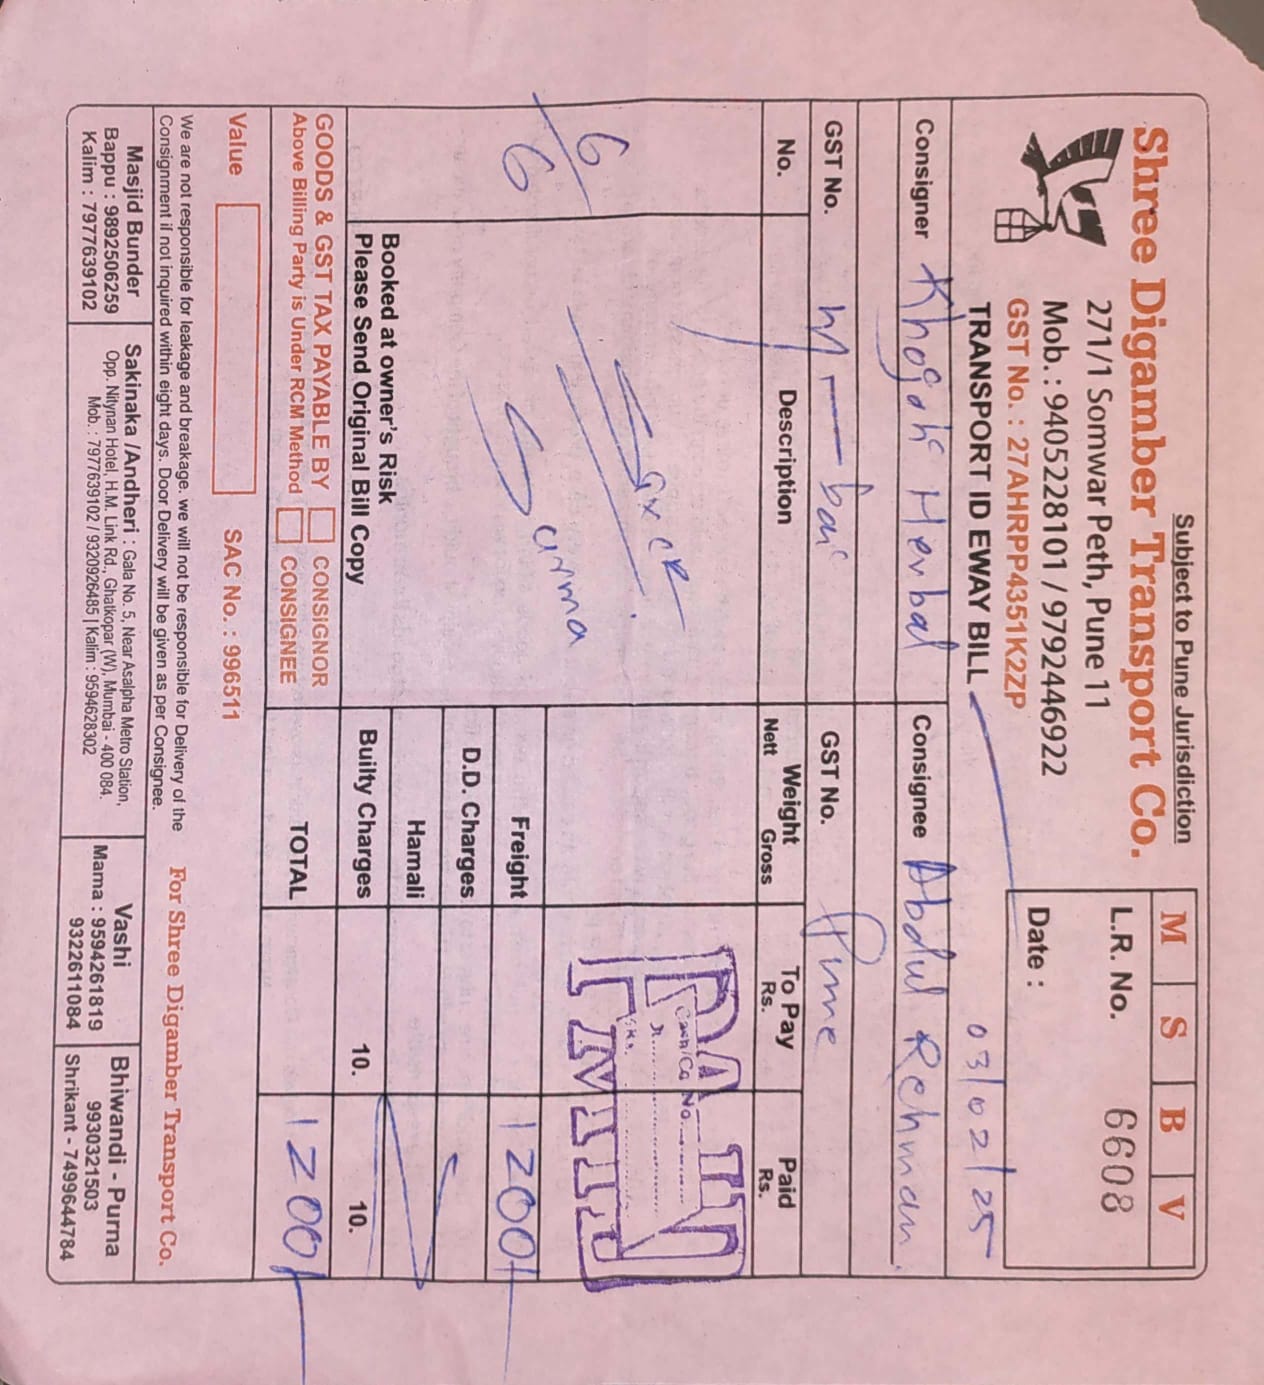 Subject to Pune Jurisdiction
Shree Digamber Transport Co.
271/1 Somwar Peth, Pune 11
Mob. : 9405228101 / 9792446922
GST No. : 27AHRPP4351K2ZP
TRANSPORT ID EWAY BILL
M S B V
L.R. No. 6608
Date :
03/02/25
Consigner Khojati Herbal
Consignee Abdul Rehman
GST No. M bai
GST No. Pune
No. Description Weight Nett Gross To Pay Rs. Paid Rs.
6
6
PAID
Freight 1200/-
D.D. Charges
Hamali
Builty Charges 10. 10.
TOTAL 1200/-
Booked at owner's Risk
Please Send Original Bill Copy
GOODS & GST TAX PAYABLE BY CONSIGNOR
Above Billing Party is Under RCM Method CONSIGNEE
Value SAC No. : 996511
We are not responsible for leakage and breakage. we will not be responsible for Delivery of the
Consignment if not inquired within eight days. Door Delivery will be given as per Consignee.
For Shree Digamber Transport Co.
Masjid Bunder
Bappu : 9892506259
Kalim : 7977639102
Sakinaka /Andheri : Gala No. 5, Near Asalpha Metro Station,
Opp. Nitynan Hotel, H.M. Link Rd., Ghatkopar (W), Mumbai - 400 084.
Mob. : 7977639102 / 9320926485 | Kalim : 9594628302
Vashi
Mama : 9594261819
9322611084
Bhiwandi - Purna
9930321503
Shrikant - 7499644784